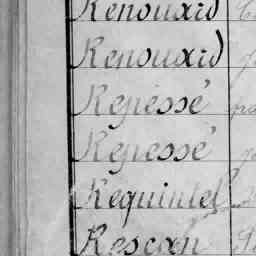 Renouard
Renouard
Repessé
Repessé
Requintel
Rescan